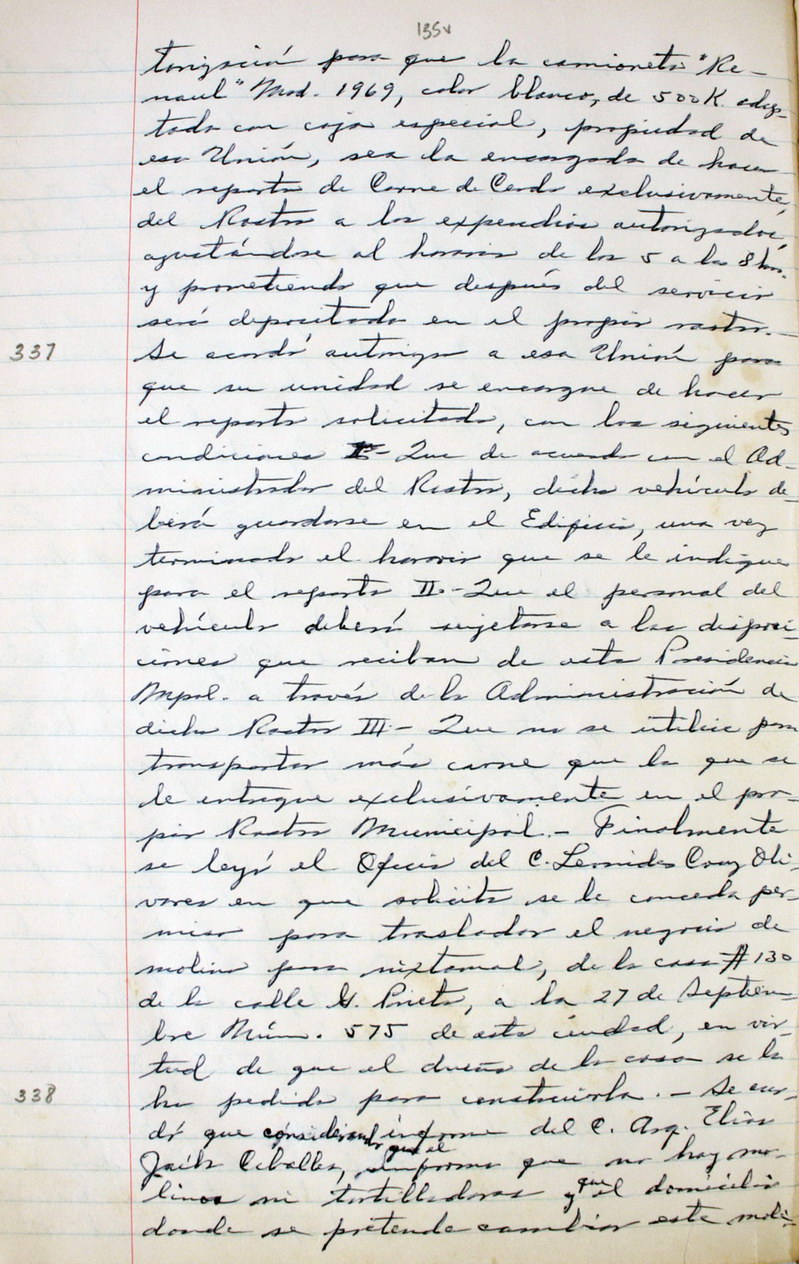 135v
torización para que la camioneta "Re-
naul" Mod. 1969, color blanco, de 500 K. adap-
tada con caja especial, propiedad de
esa Unión, sea la encargada de hacer
el reparto de Carne de Cerdo exclusivamente,
del Rastro a los expendios autorizados,
ajustándose al horario de las 5 a las 8 hrs.
y prometiendo que después del servicio
será depositada en el propio rastro.-
337
Se acordó autorizar a esa Unión para
que su unidad se encargue de hacer
el reparto solicitado, con las siguientes
condiciones I.- Que de acuerdo con el Ad-
ministrador del Rastro, dicho vehículo de-
berá guardarse en el Edificio, una vez
terminado el horario que se le indique
para el reparto II.- Que el personal del
vehículo deberá sujetarse a las disposi-
ciones que reciban de esta Presidencia
Mpal. a través de la Administración de
dicho Rastro III.- Que no se utilice para
transportar más carne que la que se
le entregue exclusivamente en el pro-
pio Rastro Municipal.- Finalmente
se leyó el Oficio del C. Leonides Cruz Oli-
vares en que solicita se le conceda per-
miso para trasladar el negocio de
molino para nixtamal, de la casa # 130
de la calle G. Prieto, a la 27 de Septiem-
bre Núm. 575 de esta ciudad, en vir-
tud de que el dueño de la casa se la
338
ha pedido para construirla.- Se acor-
dó que considerando informe del C. Arq. Elías
que el
Ceballos, informa que no hay mo-
linos ni tortilladoras y que el domicilio
donde se pretende cambiar este moli-